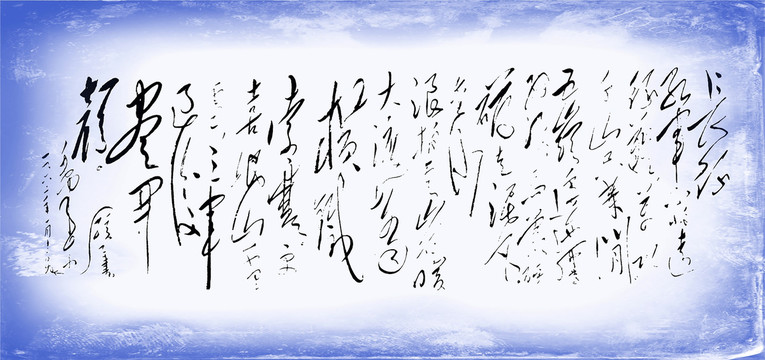 长征
红军不怕远
征难万水
千山只等闲
五岭逶迤腾
细浪乌蒙磅
礴走泥丸
金沙
浪拍崖暖
大渡桥
横铁
索寒更
喜岷山千里
雪三军
过后
尽开
颜
毛泽东
一九六二年